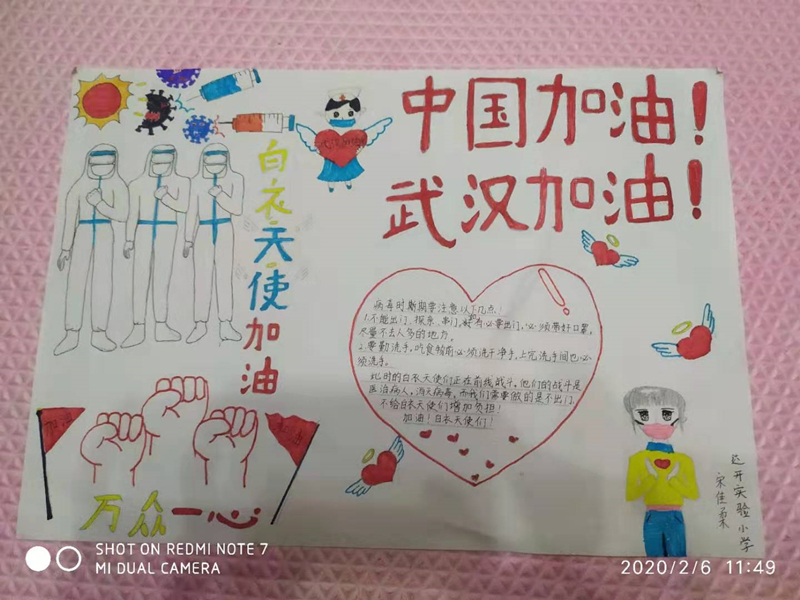 中国加油！
武汉加油！
白衣天使加油
病毒时期期要注意以下几点！
1.不能出门、探亲、串门，如有必要出门，必须带好口罩，
尽量不去人多的地方。
2.要勤洗手，吃食物前必须洗干净手，上完洗手间也必
须洗手。
此时的白衣天使们正在前线战斗，他们的战斗是
医治病人，消灭病毒，而我们需要做的是不出门，
不给白衣天使们增加负担！
加油！白衣天使们！
加油
万众一心
达开实验小学
宋佳柔
SHOT ON REDMI NOTE 7
MI DUAL CAMERA
2020/2/6 11:49